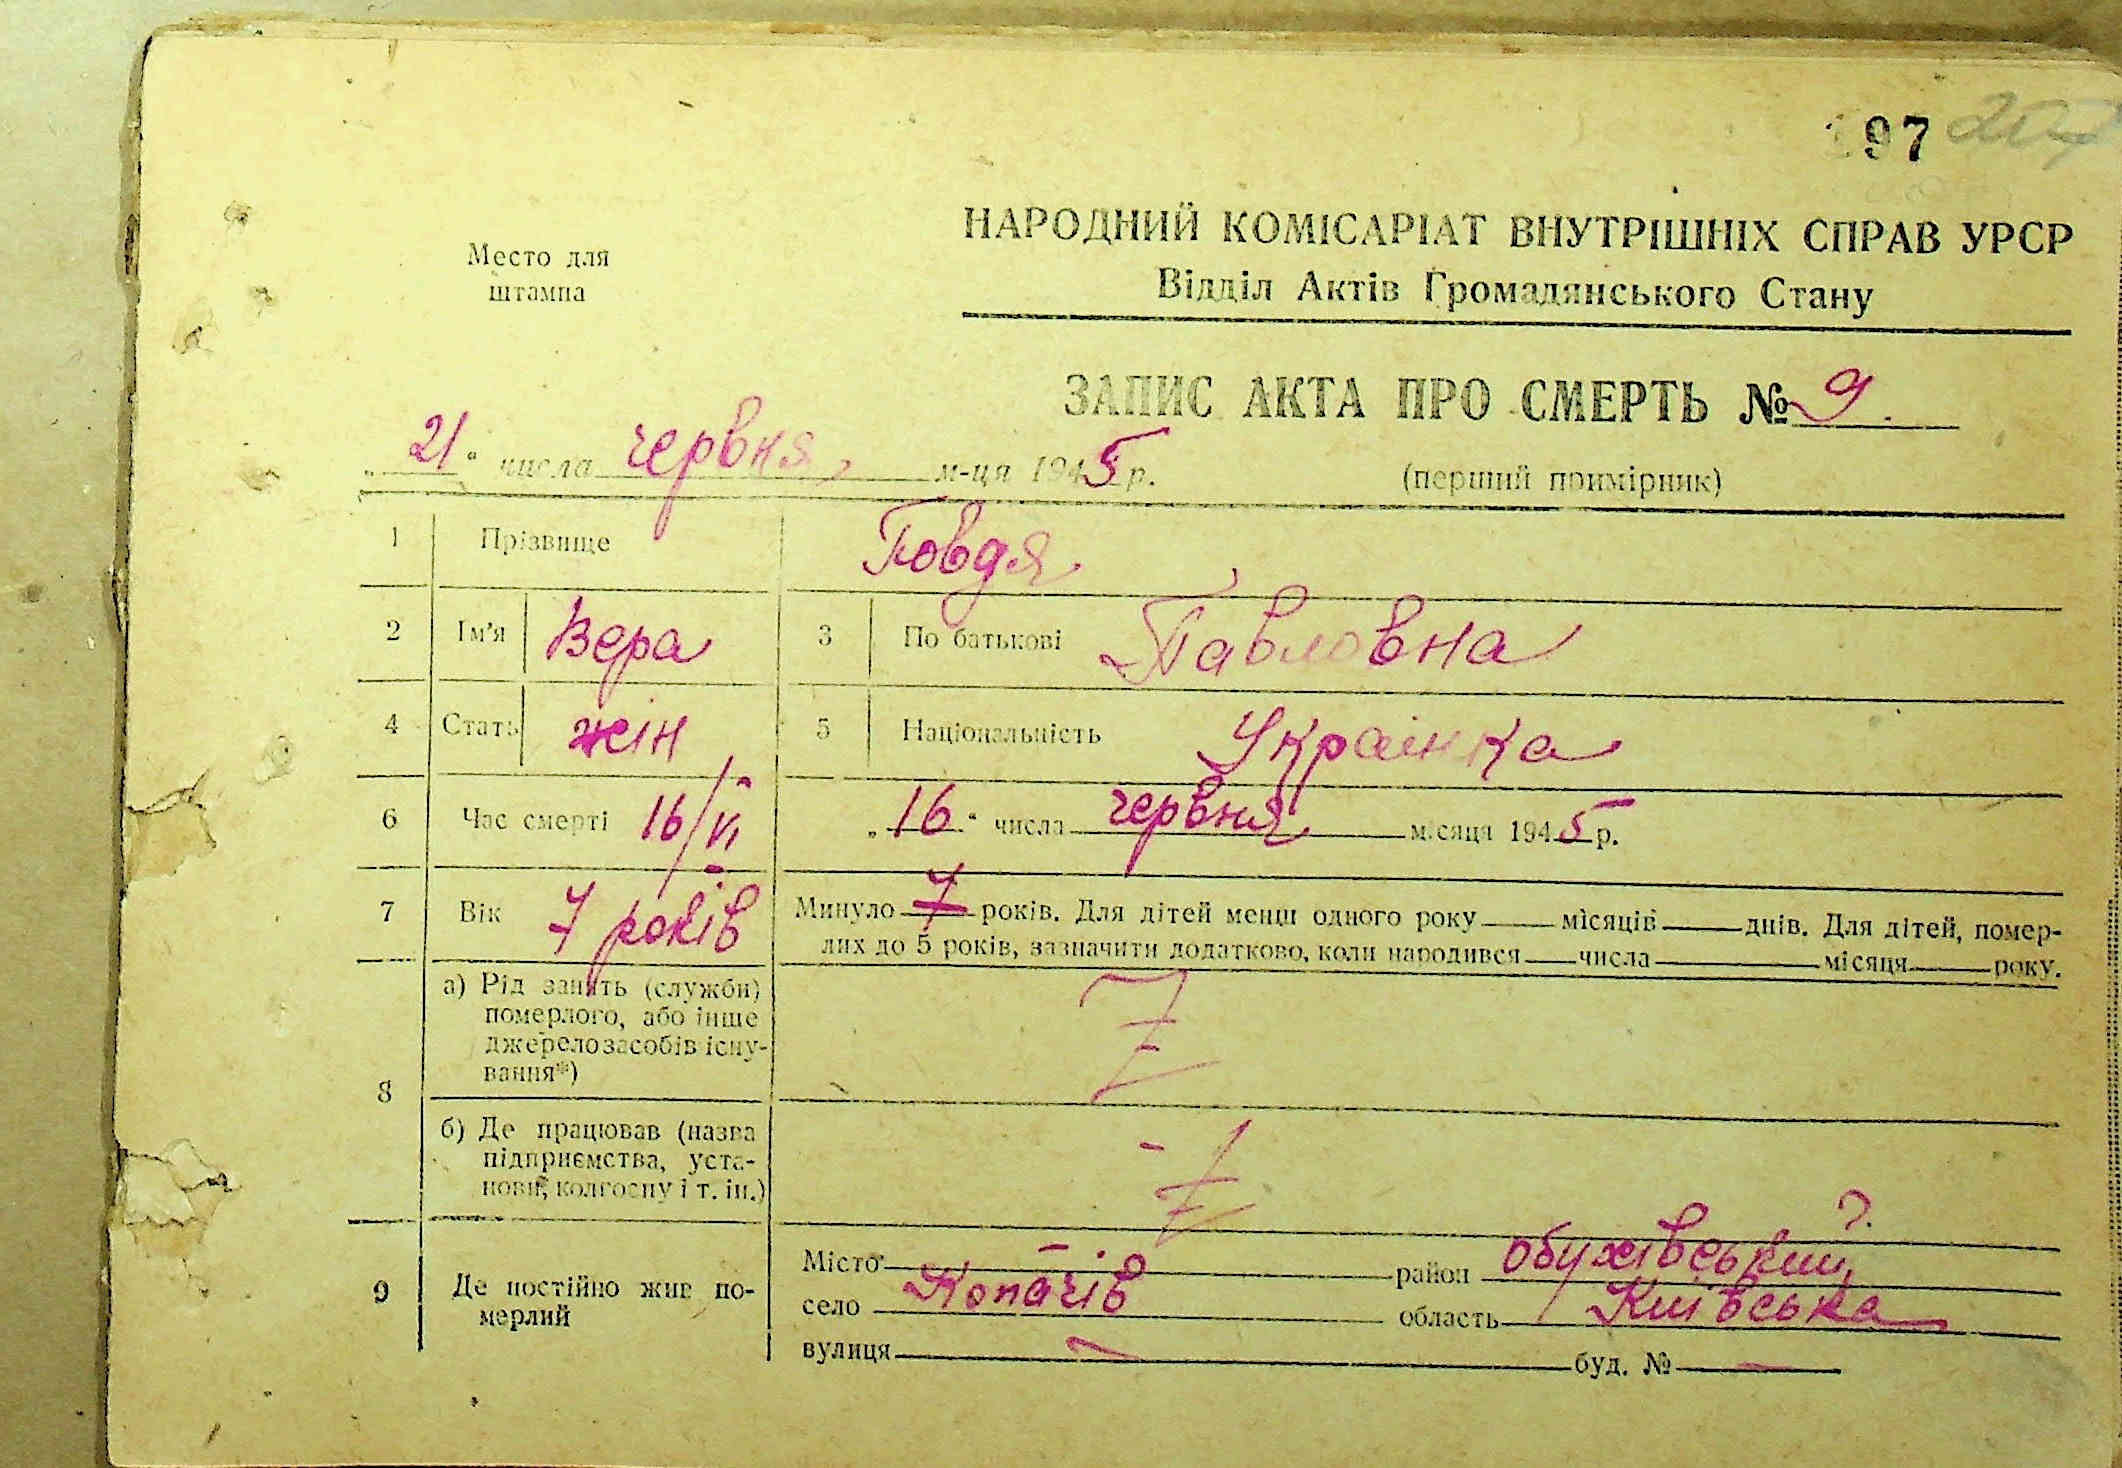 197 207
Место для
штампа
НАРОДНИЙ КОМІСАРІАТ ВНУТРІШНІХ СПРАВ УРСР
Відділ Актів Громадянського Стану
ЗАПИС АКТА ПРО СМЕРТЬ № 9.
„21“ числа червня м-ця 1945 р.
(перший примірник)
1 Прізвище Говдя
2 Ім'я Вера 3 По батькові Павловна
4 Стать жін 5 Національність Українка
6 Час смерті 16/VI „16“ числа червня місяця 1945 р.
7 Вік 7 років Минуло 7 років. Для дітей менш одного року місяців днів. Для дітей, помер-
лих до 5 років, зазначити додатково, коли народився числа місяця року.
8 а) Рід занять (служби)
померлого, або інше
джерело засобів існу-
вання*)
б) Де працював (назва
підприємства, уста-
нови, колгоспу і т. ін.)
9 Де постійно жив по-
мерлий
Місто — район обухівський
село Копачів область Київська
вулиця — буд. № —